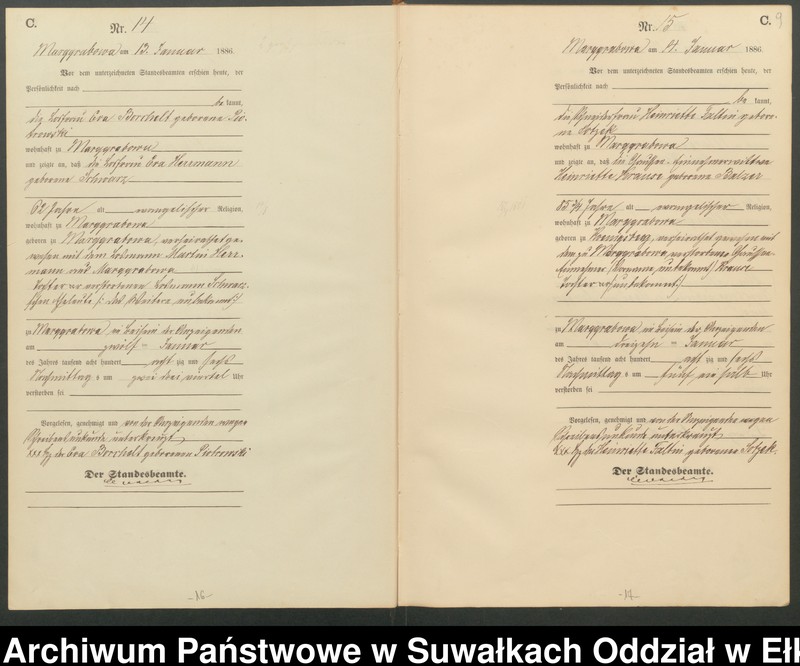 C.
Nr. 14
Marggrabowa am 13. Januar 1886.
Vor dem unterzeichneten Standesbeamten erschien heute, der
Persönlichkeit nach
be kannt,
die Losfrau Eva Borchelt geborene Pio-
trowski
wohnhaft zu Marggrabowa
und zeigte an, daß die Losfrau Eva Herrmann
geborene Schwarz
62 Jahre alt evangelischer Religion,
wohnhaft zu Marggrabowa
geboren zu Marggrabowa, verheirathet ge-
wesen mit dem Losmann Martin Herr-
mann aus Marggrabowa
Tochter der verstorbenen Losmann Schwarz-
schen Eheleute (: das Weitere unbekannt :)
zu Marggrabowa in Beisein der Anzeigenden
am zwölf ten Januar
des Jahres tausend acht hundert acht zig und sechs
Nachmittag s um zwei drei viertel Uhr
verstorben sei
Vorgelesen, genehmigt und von der Anzeigenden wegen
Schreibensunkunde unterkreuzt
xxx Hz. der Eva Borchelt geborenen Piotrowski
Der Standesbeamte.
-16-
C. 9
Nr. 15
Marggrabowa am 14. Januar 1886.
Vor dem unterzeichneten Standesbeamten erschien heute, der
Persönlichkeit nach
be kannt,
die Henriette gebore-
ne
wohnhaft zu Marggrabowa
und zeigte an, daß die Chaussee-Einnehmerwittwe
Henriette Krause geborene Balzer
85 3/4 Jahre alt evangelischer Religion,
wohnhaft zu Marggrabowa
geboren zu Koenigsberg, verheirathet gewesen mit
dem zu Marggrabowa verstorbenen Chaussee-
Einnehmer (Vorname unbekannt) Krause
Tochter der (unbekannt)
zu Marggrabowa in Beisein der Anzeigenden
am dreizehn ten Januar
des Jahres tausend acht hundert acht zig und sechs
Nachmittag s um fünf ein halb Uhr
verstorben sei
Vorgelesen, genehmigt und von der Anzeigenden wegen
Schreibensunkunde unterkreuzt
xxx Hz. der Henriette geborenen
Der Standesbeamte.
-17-
Archiwum Państwowe w Suwałkach Oddział w Ełk